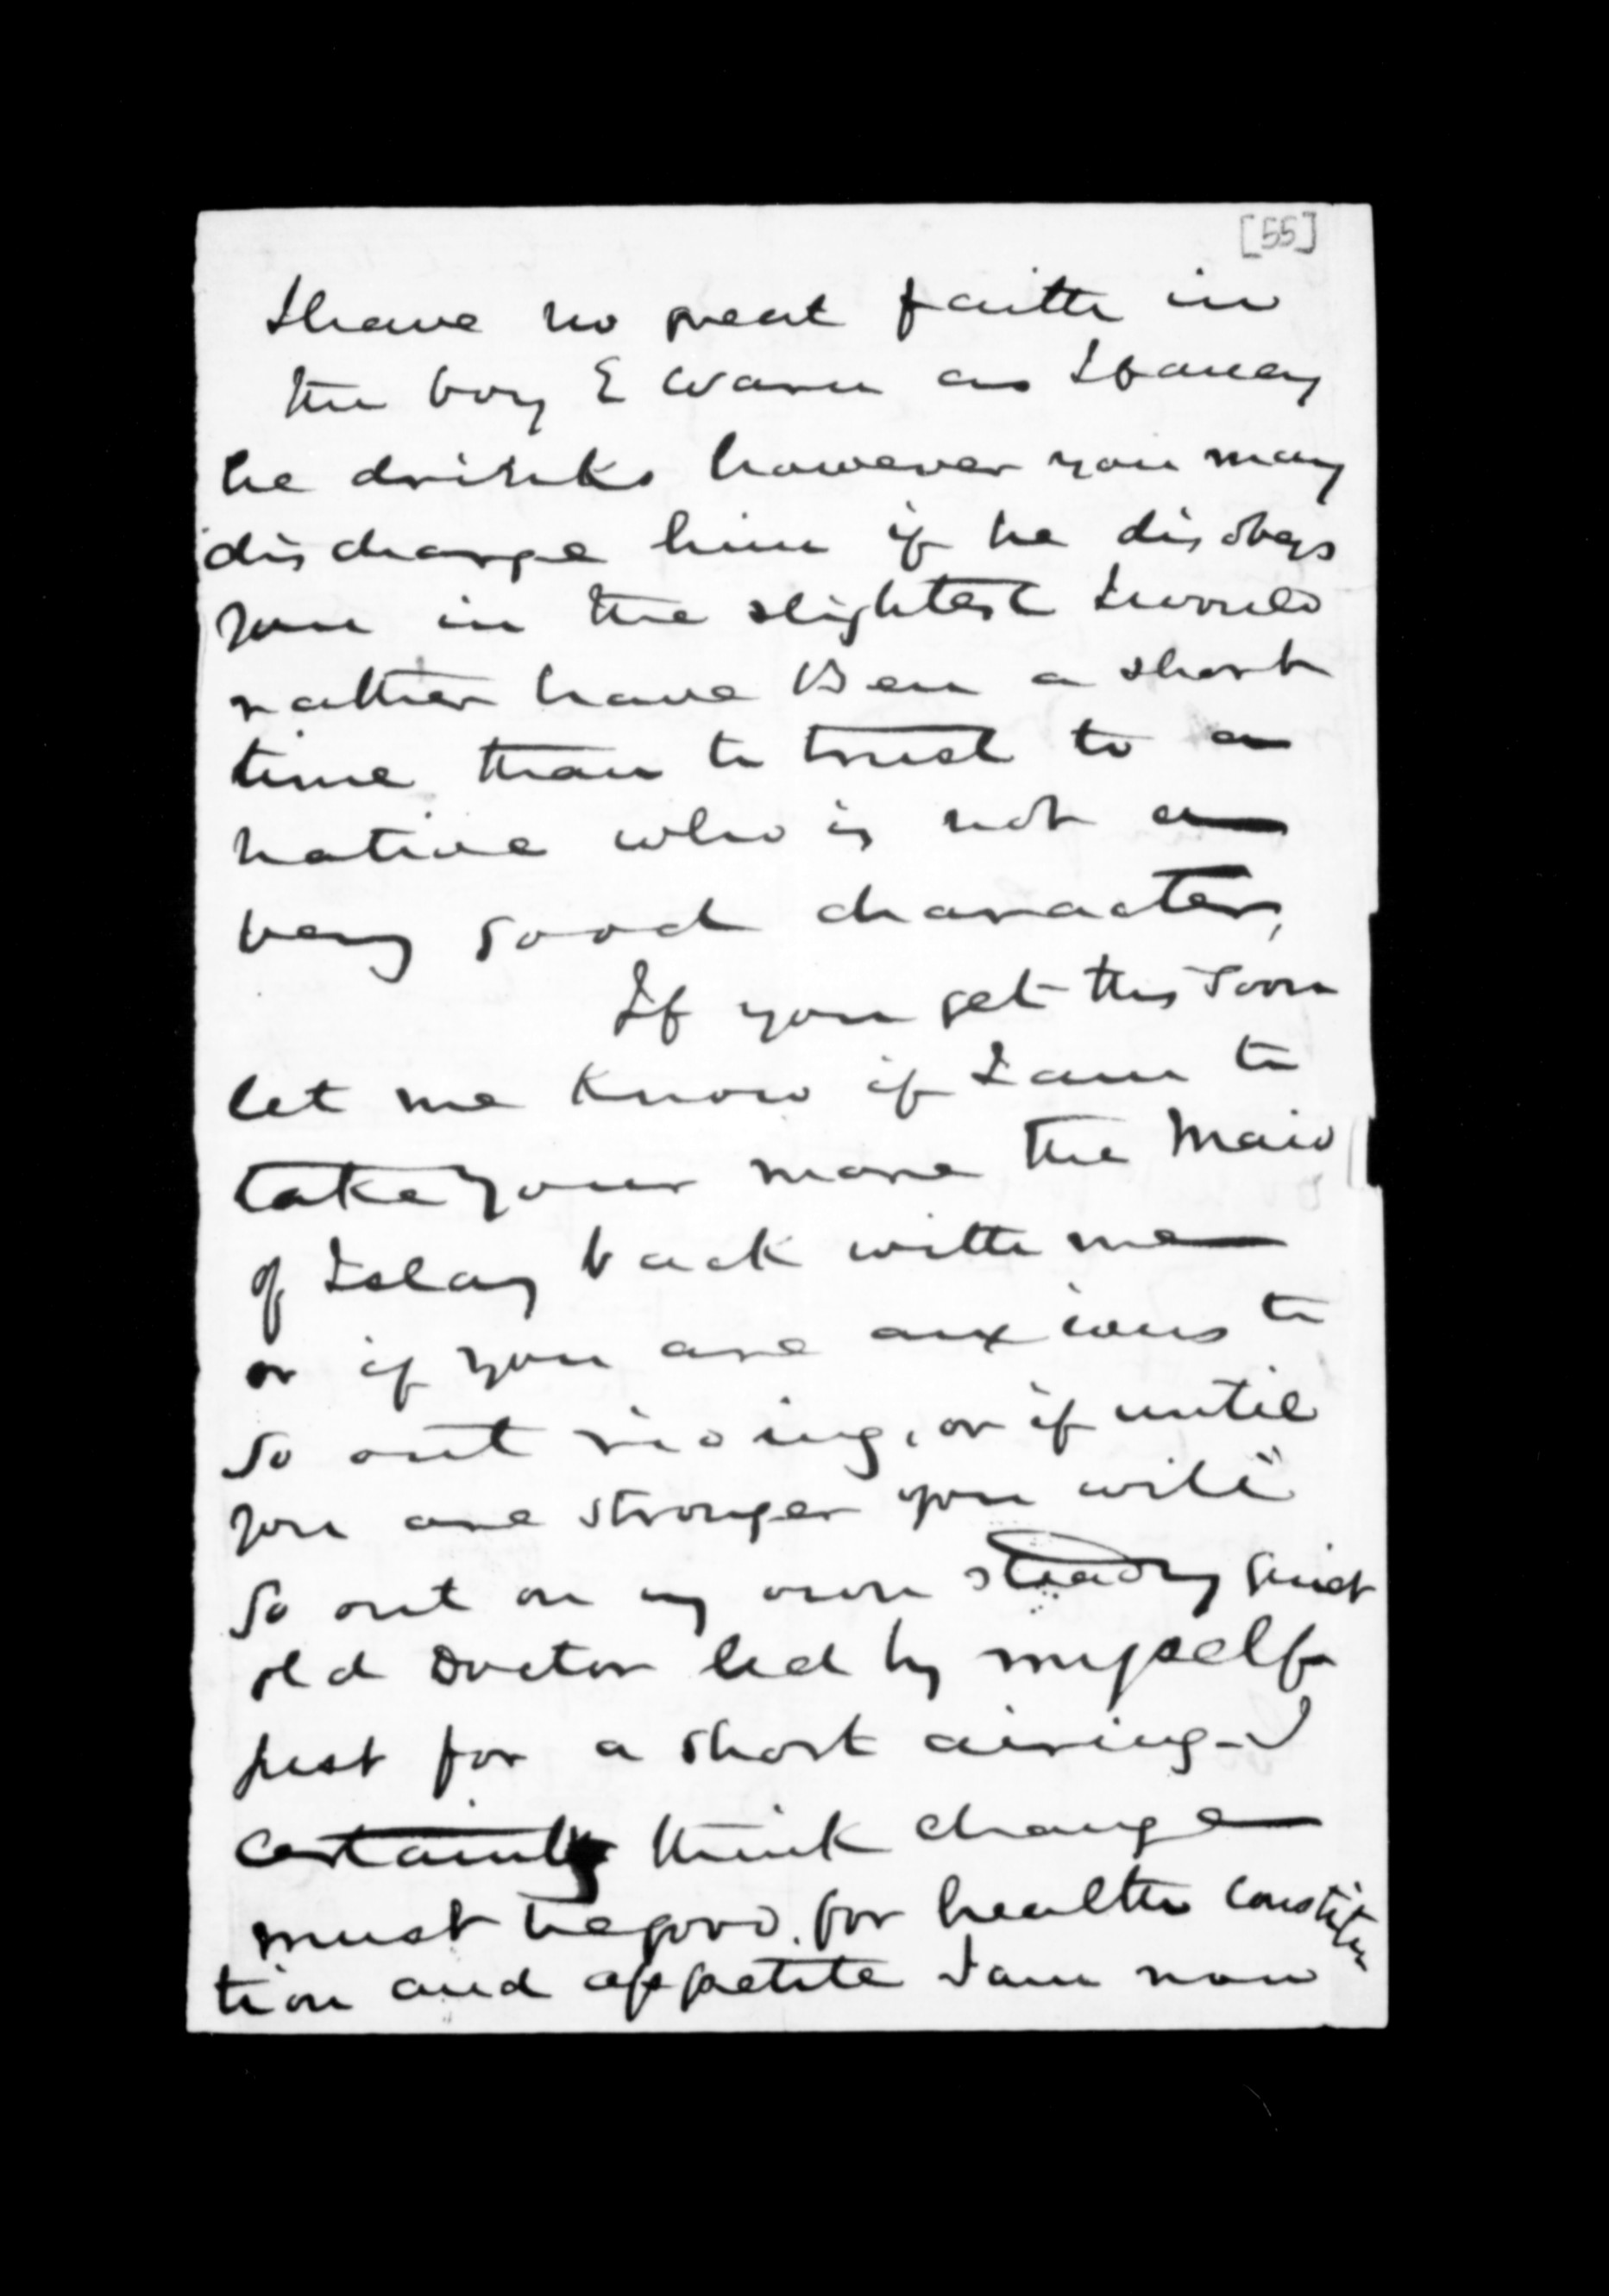 [55]
I have no great faith in
the boy E Waru as I fancy
he drinks however you may
discharge him if he disobeys
you in the slightest I would
rather have Ben a short
time than to trust to a
native who is not a
very good character,
If you get this soon
let me know if I am to
take your mare the Maid
of Islay back with me
or if you are anxious to
go out riding, or if until
you are stronger you will
go out on my own steady quiet
old Doctor led by myself
just for a short airing - I
certainly think change
must be good for health constitu
tion and appetite I am now